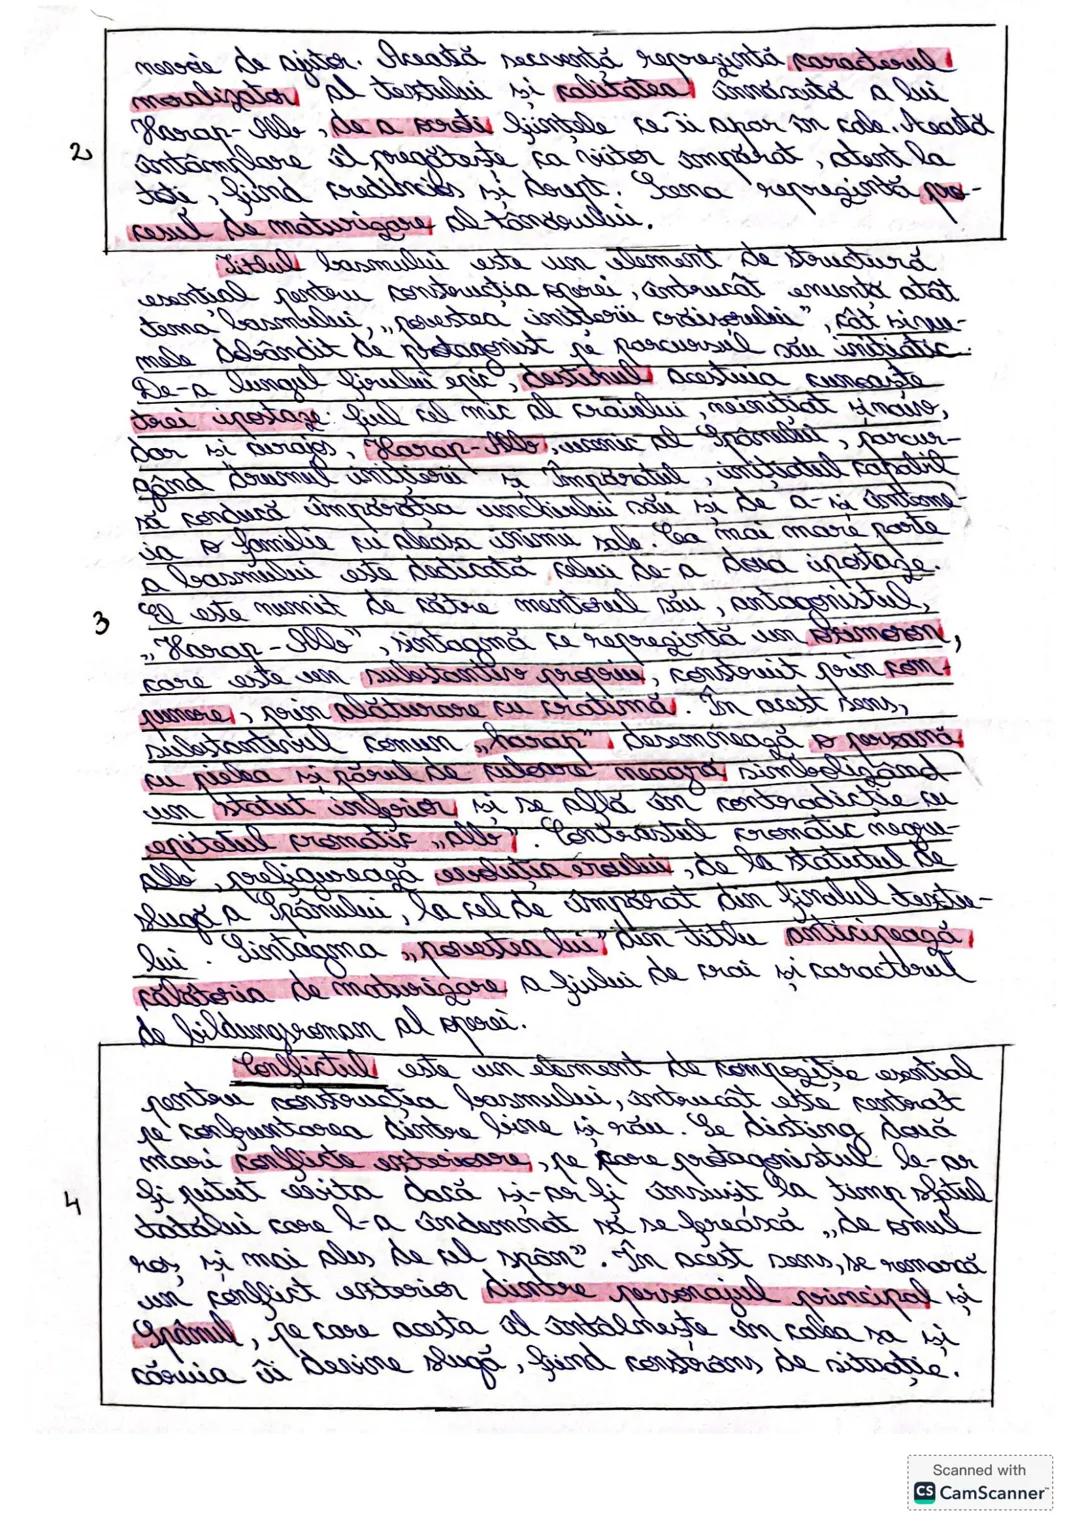 nevoie de ajutor. Această secvență reprezintă caracterul
moralizator al textului și calitatea înnăscută a lui
Harap-Alb, de a ocroti ființele ce îi apar în cale. Această
2 întâmplare îl pregătește ca viitor împărat, atent la
toți, fiind credincios și drept. Scena reprezintă pro-
cesul de maturizare al tânărului.
Titlul basmului este un element de structură
esențial pentru construcția operei, întrucât enunță atât
tema basmului, „povestea inițierii crăișorului”, cât și nu-
mele dobândit de protagonist pe parcursul său inițiatic.
De-a lungul firului epic, destinul acestuia cunoaște
trei ipostaze: fiul cel mic al craiului, neinițiat și naiv,
dar și curajos, Harap-Alb, ucenic al Spânului, parcur-
gând drumul inițierii și Împăratul, inițiatul capabil
să conducă împărăția unchiului său și de a-și înteme-
ia o familie cu aleasa inimii sale. Cea mai mare parte
a basmului este dedicată celei de-a doua ipostaze.
3 El este numit de către mentorul său, antagonistul,
„Harap-Alb”, sintagmă ce reprezintă un oximoron,
care este un substantiv propriu, construit prin com-
punere, prin alăturare cu cratimă. În acest sens,
substantivul comun „harap” desemnează o persoană
cu pielea și părul de culoare neagră simbolizând
un statut inferior și se află în contradicție cu
epitetul cromatic „alb”. Contrastul cromatic negru-
alb, prefigurează evoluția eroului, de la statutul de
slugă a Spânului, la cel de împărat din finalul textu-
lui. Sintagma „povestea lui” din titlu anticipează
călătoria de maturizare a fiului de crai și caracterul
de bildungsroman al operei.
Conflictul este un element de compoziție esențial
pentru construcția basmului, întrucât este centrat
pe confruntarea dintre bine și rău. Se disting două
mari conflicte exterioare, pe care protagonistul le-ar
4 fi putut evita dacă și-ar fi însușit la timp sfatul
tatălui care l-a îndemnat să se ferească „de omul
roș, și mai ales de cel spân”. În acest sens, se remarcă
un conflict exterior dintre personajul principal și
Spânul, pe care acesta îl întâlnește în calea sa și
căruia îi devine slugă, fiind constrâns de situație.
Scanned with
CS CamScanner